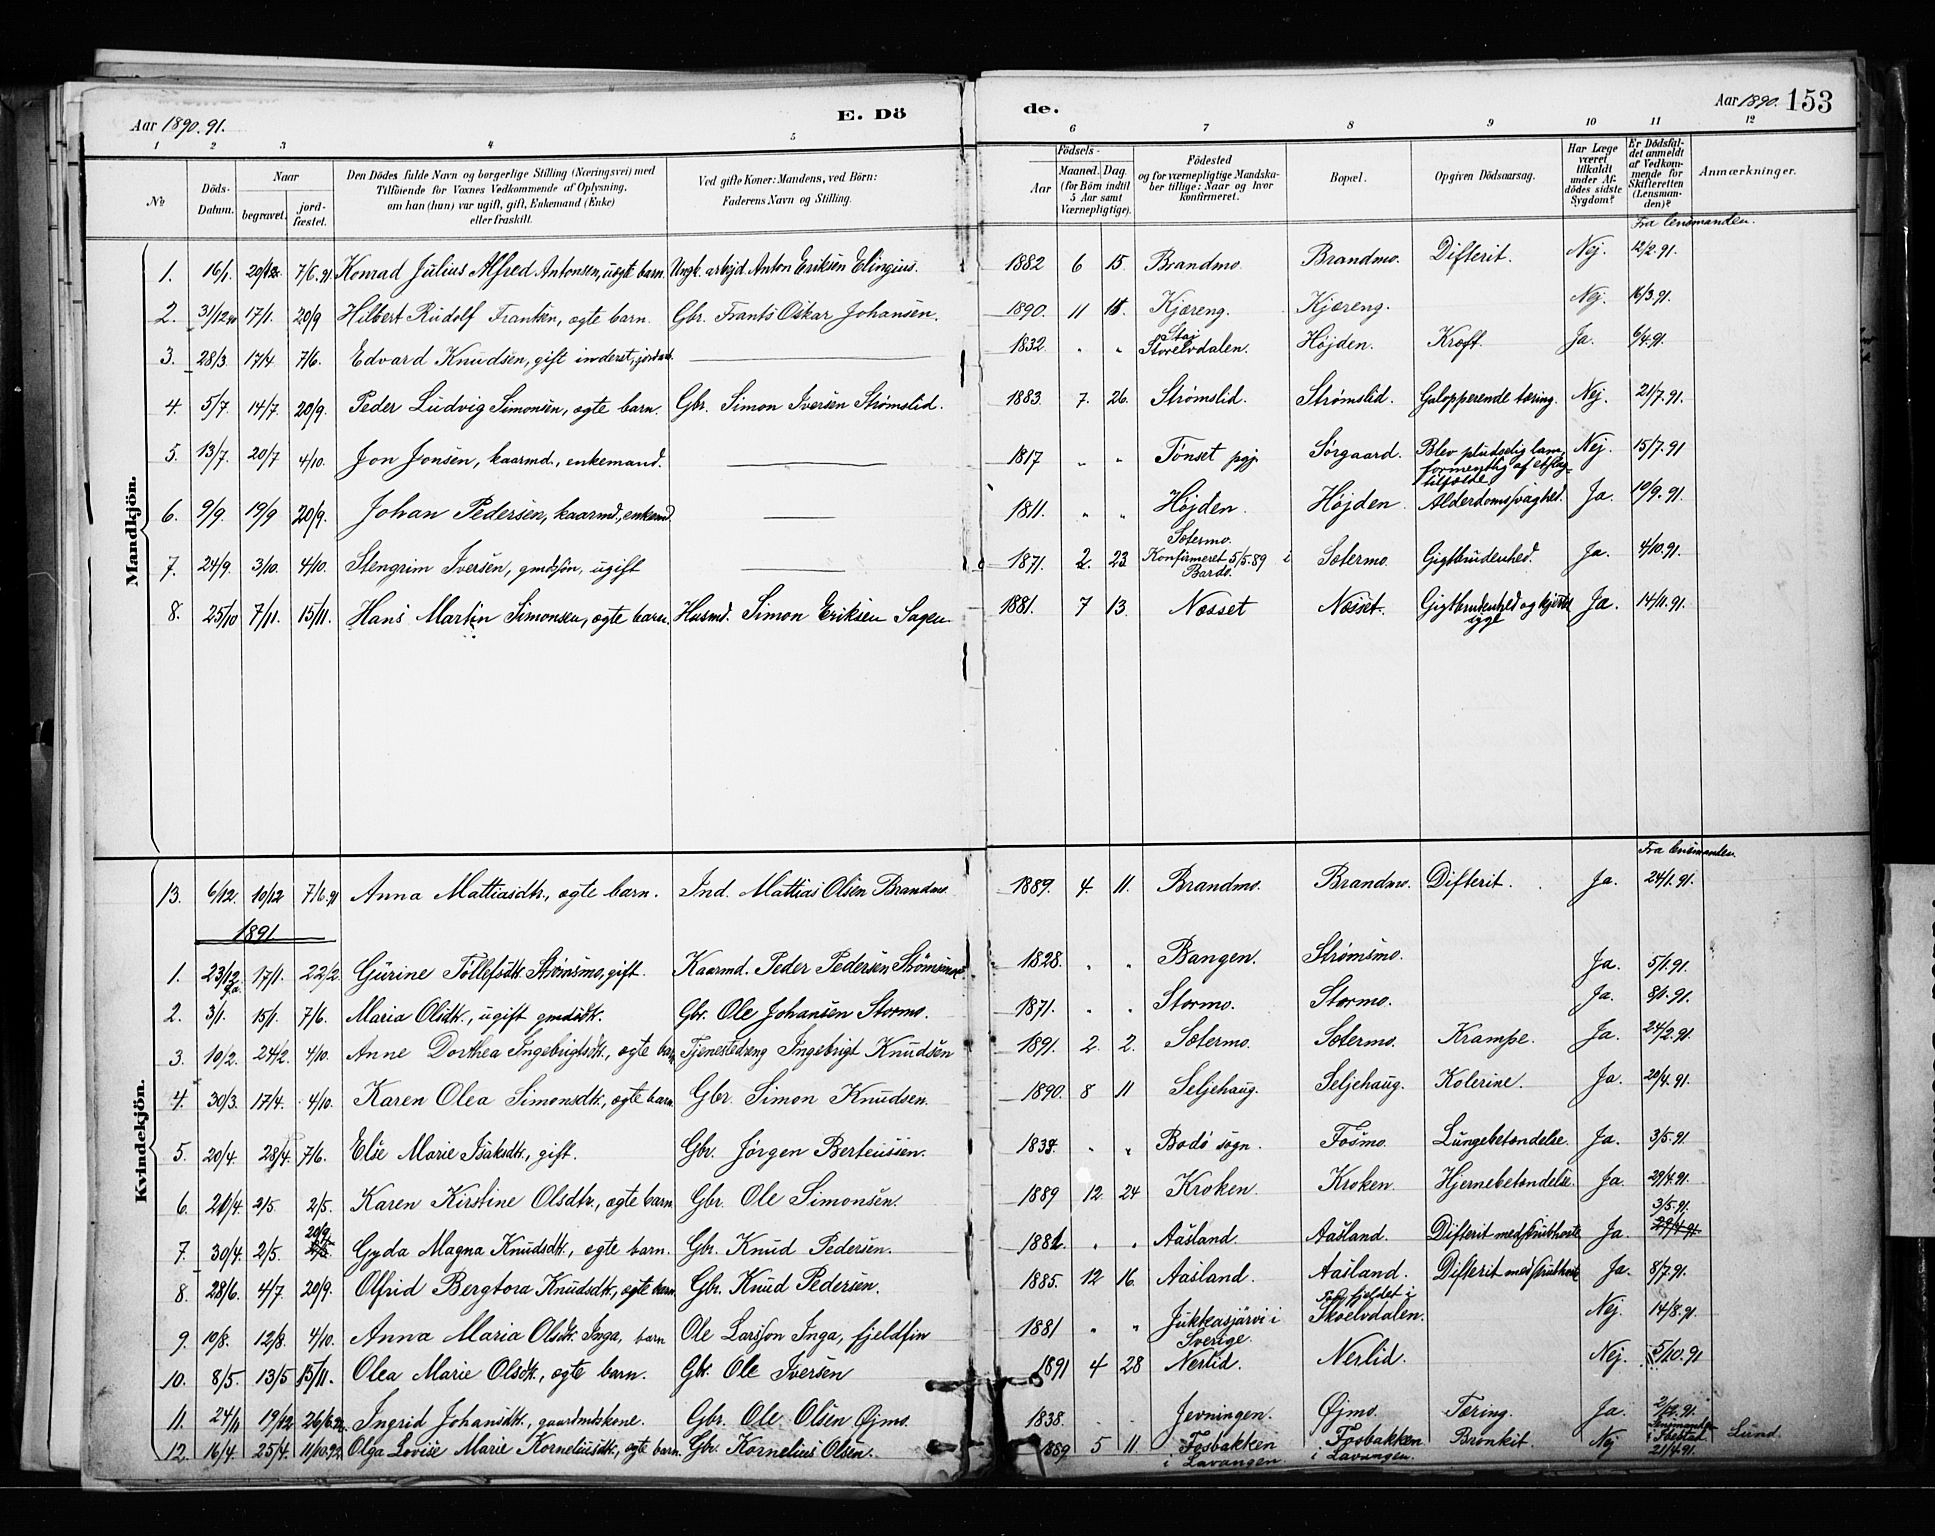 Aar 1890. 91.
E. Dö
de.
Aar 1890. 153
1 2 3 4 5 6 7 8 9 10 11 12
№
Döds-Datum.
Naar
begravet.
jord-fæstet.
Den Dödes fulde Navn og borgerlige Stilling (Næringsvei) med
Tilföiende for Voxnes Vedkommende af Oplysning,
om han (hun) var ugift, gift, Enkemand (Enke)
eller fraskilt.
Ved gifte Koner: Mandens, ved Börn:
Faderens Navn og Stilling.
Födsels-
Aar
Maaned. Dag
(for Börn indtil
5 Aar samt
Værnepligtige).
Födested
og for værnepligtige Mandska-
ber tillige: Naar og hvor
konfirmeret.
Bopæl.
Opgiven Dödsaarsag.
Har Læge
været
tilkaldt
under Af-
dödes sidste
Sygdom?
Er Dödsfal-
det anmeldt
af Vedkom-
mende for
Skifteretten
(Lensman-
den)?
Anmærkninger.
Fra lensmanden.
Mandkjön.
1. 16/1. 20/12. 7/6.91 Konrad Julius Alfred Antonsen, uægte barn. Ungk. arbejd. Anton Eriksen Elingius. 1882 6 15. Brandmo. Brandmo. Difterit. Nej. 12/2.91.
2. 31/12 90 17/1. 20/9 Hilbert Rudolf Frantsen, ægte barn. Gbr. Frants Oskar Johansen. 1890. 11 11. Kjæreng. Kjæreng. Nej. 16/3.91.
3. 28/3. 17/4. 7/6. Edvard Knudsen, gift inderst, jordarb. 1832. " " Storelvdalen. Højden. Kræft. Ja. 6/4.91.
4. 5/7. 14/7. 20/9. Peder Ludvig Simonsen, ægte barn. Gbr. Simon Iversen Strømslid. 1883. 7. 26. Strømslid. Strømslid. Galopperende tæring. Nej. 21/7.91.
5. 13/7. 20/7 4/10. Jon Jonsen, kaarmd., enkemand. 1817 " " Tønset pgj. Sørgaard. Blev pludselig lam,
formentlig af et slag-
tilfælde Nej. 15/7.91
6. 9/9. 19/9 20/9. Johan Pedersen, kaarmd., enkemd. 1811. " " Højden. Højden. Alderdomssvaghed. Ja. 10/9.91.
7. 24/9. 3/10. 4/10. Stengrim Iversen, gmdssøn, ugift 1871. 2. 23. Sætermo.
Konfirmeret 5/5.89 i
Bardo. Sætermo. Gigtbrudenhed. Ja. 4/10.91.
8. 25/10 7/11. 15/11. Hans Martin Simonsen, ægte barn. Husmd. Simon Eriksen Sagen. 1881. 7 13. Næsset Næsset. Gigtbrudenhed og hjerte
syge Ja. 14/11.91.
Kvindekjön.
Fra lensmanden.
13. 6/12. 10/12 7/6.91 Anna Mattiasdtr., ægte barn. Ind. Mattias Olsen Brandmo. 1889. 4 11. Brandmo. Brandmo. Difterit. Ja. 24/1.91.
1891
1. 23/12 90. 17/1. 22/2. Gurine Tollefsdtr. Strømsmo, gift. Kaarmd. Peder Pedersen Strømsmo 1828. " " Bangen. Strømsmo. Ja. 5/1.91.
2. 3/1. 15/1. 7/6. Maria Olsdtr., ugift gmdsdtr. Gbr. Ole Johansen Stormo. 1871. " " Stormo. Stormo. Ja. 8/1.91.
3. 10/2. 24/2. 4/10. Anne Dorthea Ingebrigtsdtr., ægte barn Tjenestedreng Ingebrigt Knudsen 1891. 2. 2. Sætermo. Sætermo. Krampe. Ja. 24/2.91.
4. 30/3. 17/4. 4/10. Karen Olea Simonsdtr., ægte barn. Gbr. Simon Knudsen. 1890. 8 11 Seljehaug. Seljehaug. Kolerine. Ja. 20/4.91.
5. 20/4. 28/4. 7/6. Else Marie Isaksdtr., gift. Gbr. Jørgen Berteussen. 1834. " " Bodø sogn. Fosmo. Lungebetændelse. Ja. 3/5.91.
6. 20/4. 2/5. 2/5. Karen Kirstine Olsdtr., ægte barn. Gbr. Ole Simonsen. 1889 12. 24 Kroken. Kroken. Hjernebetændelse. Ja. 29/4.91.
7. 30/4. 2/5. 20/9. Gyda Magna Knudsdtr., ægte barn. Gbr. Knud Pedersen. 1881. " " Aasland. Aasland. Difterit med strubhoste Ja. 3/5.91. 29/4.91
8. 28/6. 4/7. 20/9. Olfrid Bergtora Knudsdtr., ægte barn. Gbr. Knud Pedersen. 1885. 12 16. Aasland. Aasland. Difterit med strubhoste Ja. 8/7.91.
9. 10/8. 12/8. 4/10. Anna Maria Olsdtr. Inga, barn Ole Larsson Inga, fjeldfin 1881 " " Jukkasjärvi i
Sverige. fjeldet i
Skoelvdalen. Nej. 14/8.91.
10. 8/5. 13/5 15/11. Olea Marie Olsdtr., ægte barn. Gbr. Ole Iversen 1891 4 28 Nerlid. Nerlid. Nej. 5/10.91
11. 24/11 19/12 26/6.92. Ingrid Johansdtr., gaardmdskone. Gbr. Ole Olsen Øjmo. 1838. Jevningen. Øjmo. Tæring. Ja. 2/12.91.
12. 16/4. 25/4. 11/10.92 Olga Lovise Marie Korneliusdtr., ægte barn. Gbr. Kornelius Olsen. 1889 5 11 Fosbakken
i Lavangen. Fosbakken
i Lavangen. Bronkit. Nej Lensmanden
i Ibestad
21/4.91. Lund.